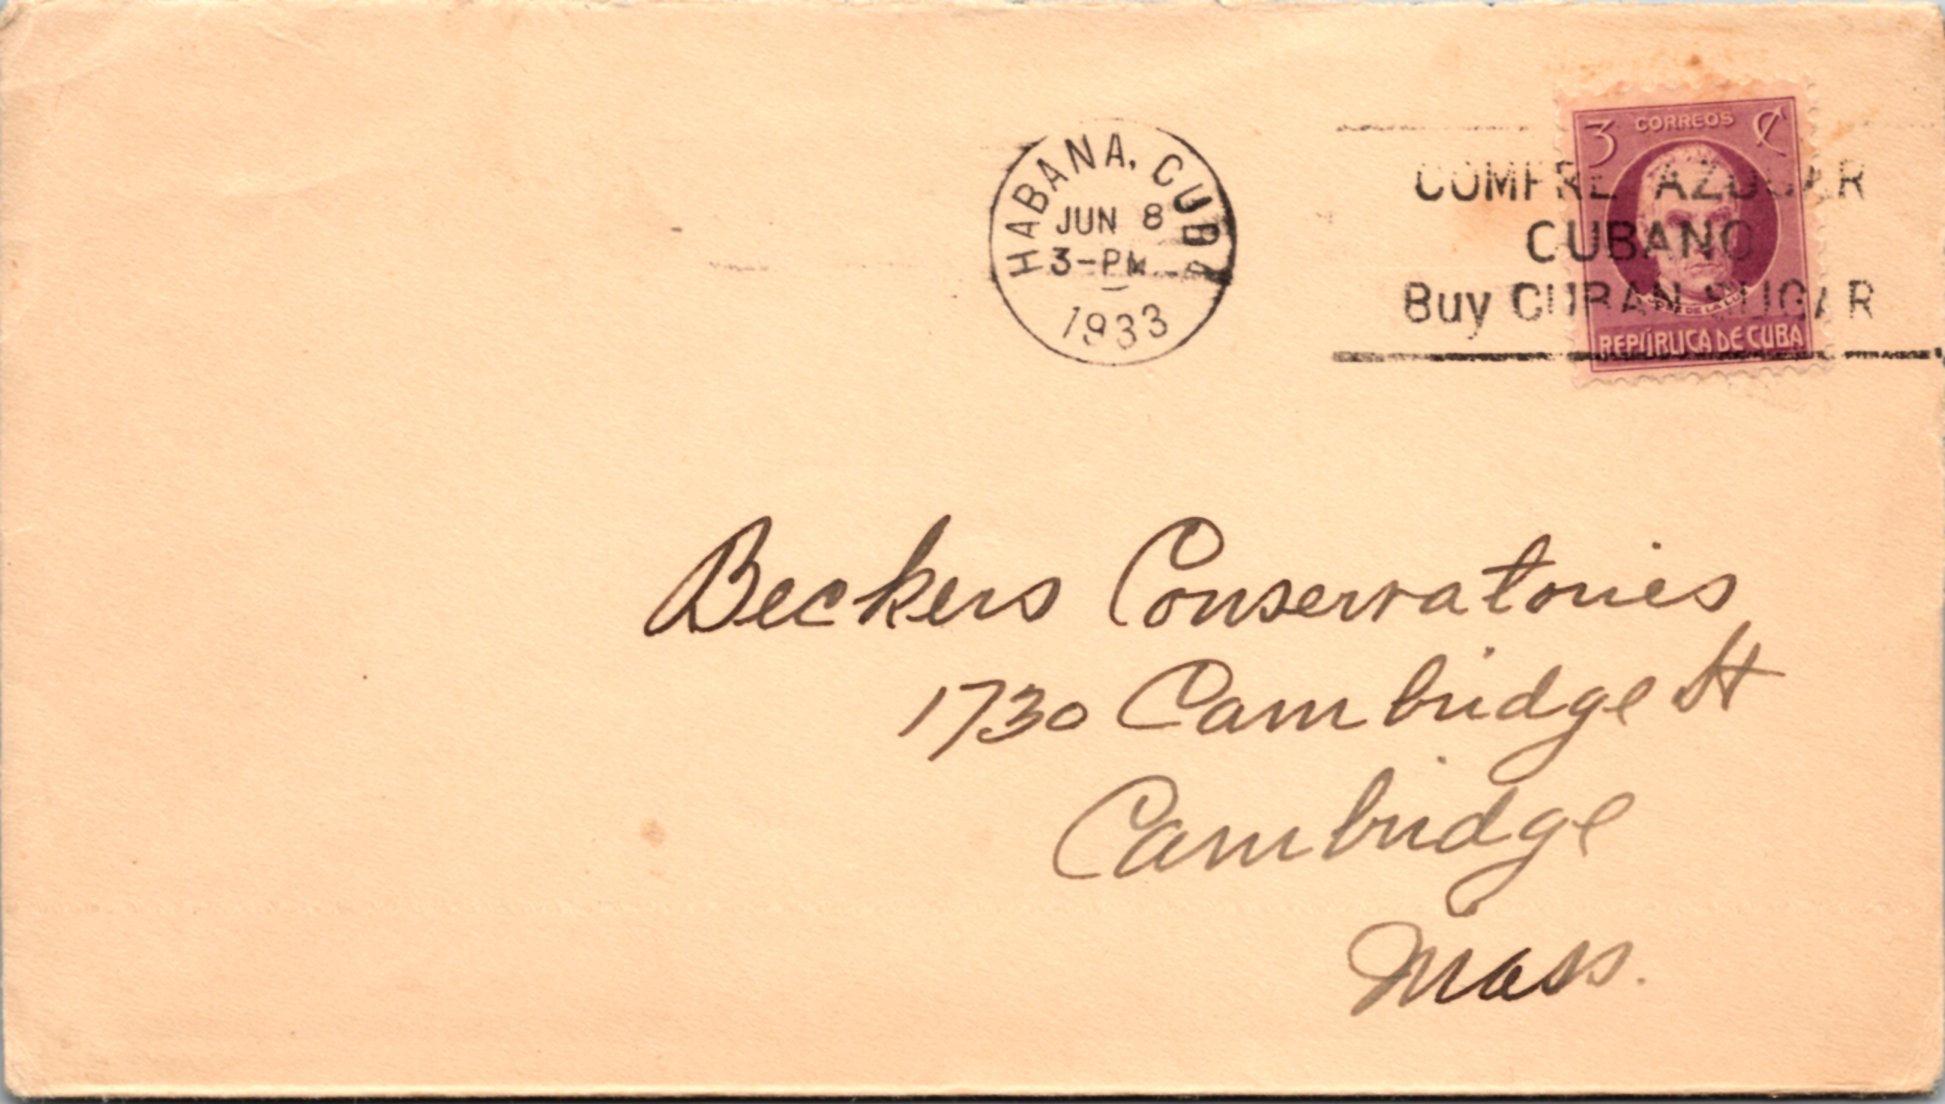 HABANA, CUBA
JUN 8
3-PM
1933
COMPRE AZUCAR
CUBANO
Buy CUBAN SUGAR
3 CORREOS ¢
DE LA LUZ
REPÚBLICA DE CUBA
Beckers Conservatories
1730 Cambridge St
Cambridge
Mass.